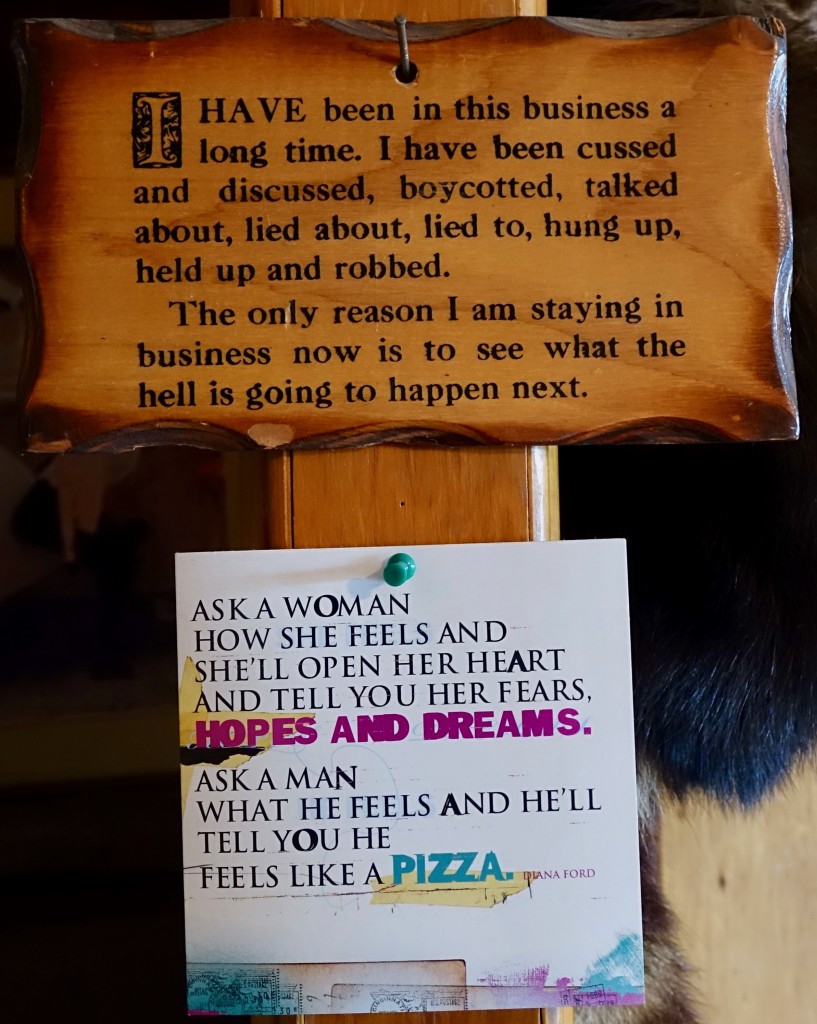 I HAVE been in this business a
long time. I have been cussed
and discussed, boycotted, talked
about, lied about, lied to, hung up,
held up and robbed.
The only reason I am staying in
business now is to see what the
hell is going to happen next.
ASK A WOMAN
HOW SHE FEELS AND
SHE'LL OPEN HER HEART
AND TELL YOU HER FEARS,
HOPES AND DREAMS.
ASK A MAN
WHAT HE FEELS AND HE'LL
TELL YOU HE
FEELS LIKE A PIZZA. DIANA FORD